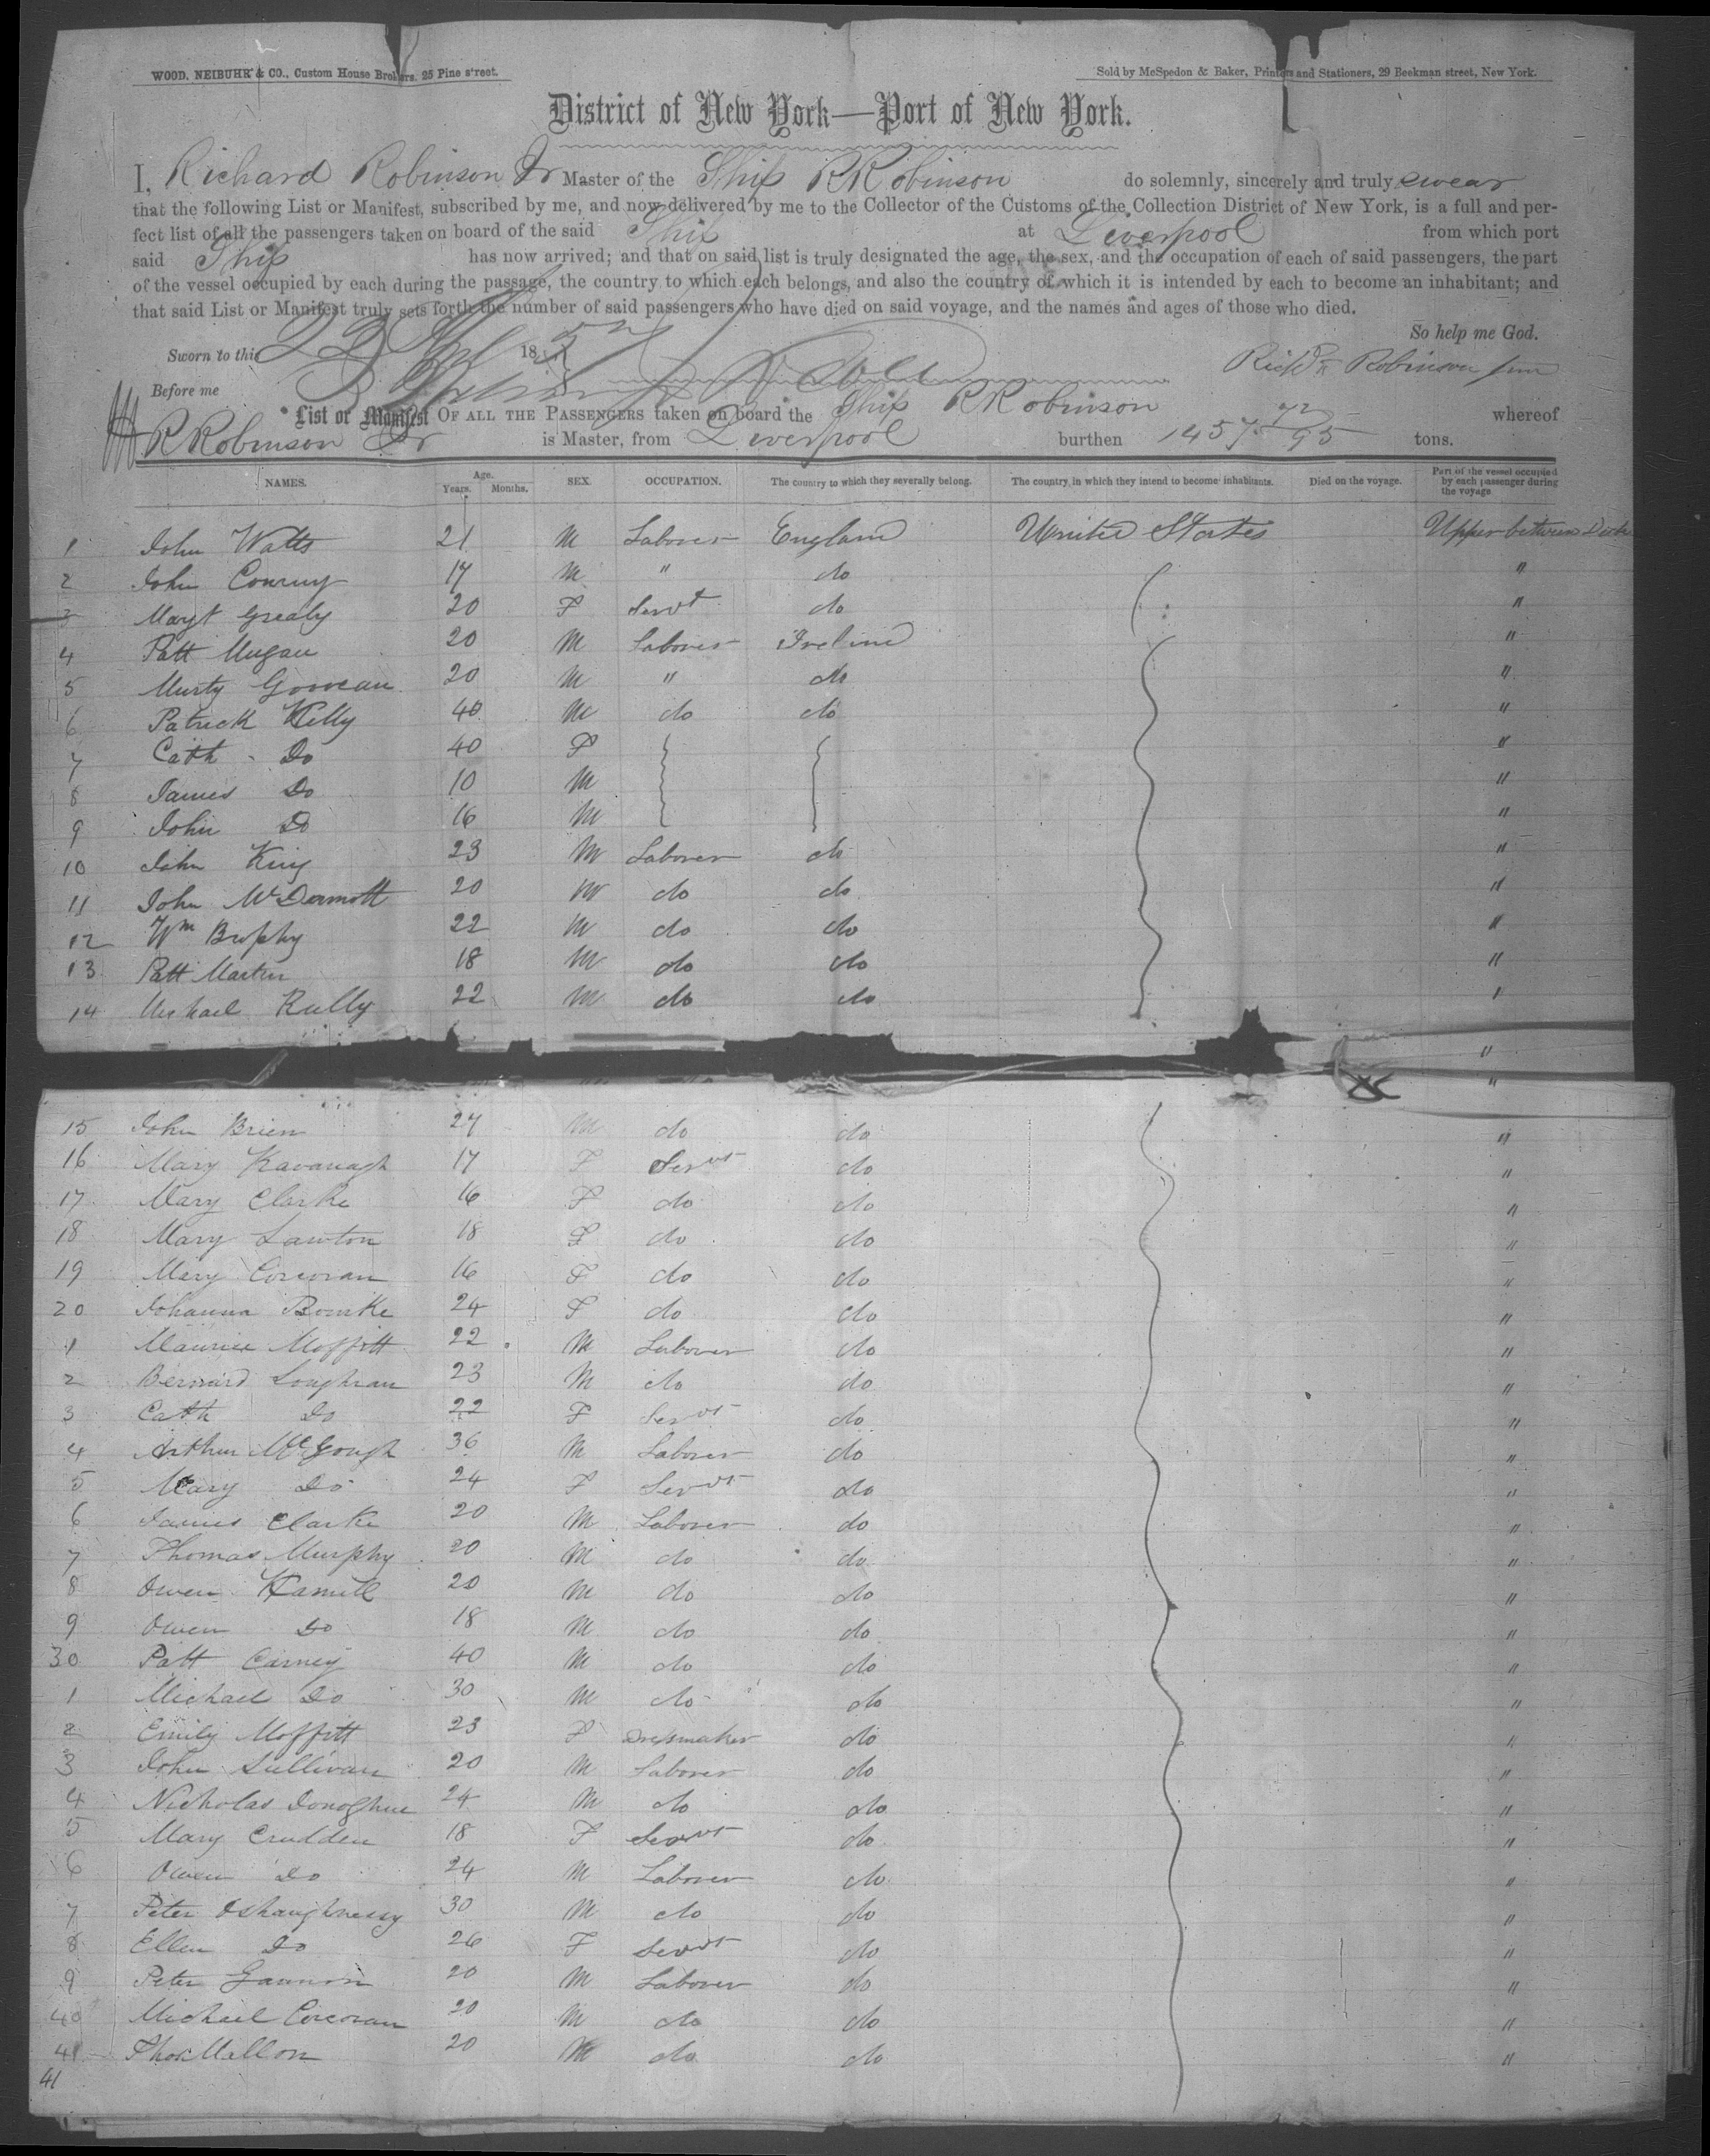 WOOD, NEIBUHR & CO., Custom House Brokers, 25 Pine street.
Sold by McSpedon & Baker, Printers and Stationers, 29 Beekman street, New York.
District of New York—Port of New York.
I, Richard Robinson Jr Master of the Ship R Robinson do solemnly, sincerely and truly swear
that the following List or Manifest, subscribed by me, and now delivered by me to the Collector of the Customs of the Collection District of New York, is a full and per-
fect list of all the passengers taken on board of the said Ship at Liverpool from which port
said Ship has now arrived; and that on said list is truly designated the age, the sex, and the occupation of each of said passengers, the part
of the vessel occupied by each during the passage, the country to which each belongs, and also the country of which it is intended by each to become an inhabitant; and
that said List or Manifest truly sets forth the number of said passengers who have died on said voyage, and the names and ages of those who died.
So help me God.
Sworn to this 23 185
Richd Robinson
Before me
List or Manifest OF ALL THE PASSENGERS taken on board the Ship R Robinson whereof
R Robinson Jr is Master, from Liverpool burthen 1457 72/95 tons.
NAMES. Age. Years. Months. SEX. OCCUPATION. The country to which they severally belong. The country in which they intend to become inhabitants. Died on the voyage. Part of the vessel occupied by each passenger during the voyage
1 John Watts 21 M Laborer England United States Upper between Decks
2 John Conway 17 M " do "
3 Margt Grealy 20 F Servt do "
4 Patt Mugan 20 M Laborer Ireland "
5 Murty 20 M " do "
6 Patrick Kelly 40 M do do "
7 Cath Do 40 F "
8 James Do 10 M "
9 John Do 16 M "
10 John King 23 M Laborer do "
11 John McDermott 20 M do do "
12 Wm Brophy 22 M do do "
13 Patt Martin 18 M do do "
14 Michael 22 M do do "
"
"
15 John Brien 27 M do do "
16 Mary Kavanagh 17 F Servt do "
17 Mary Clarke 16 F do do "
18 Mary Lawton 18 F do do "
19 Mary Corcoran 16 F do do "
20 Johanna Bourke 24 F do do "
1 Maurice Moffitt 22 M Laborer do "
2 Bernard Loughran 23 M do do "
3 Cath Do 22 F Servt do "
4 Arthur McGough 36 M Laborer do "
5 Mary Do 24 F Servt do "
6 James Clarke 20 M Laborer do "
7 Thomas Murphy 20 M do do "
8 Owen 20 M do do "
9 Owen Do 18 M do do "
30 Patt Carney 40 M do do "
1 Michael Do 30 M do do "
2 Emily Moffitt 23 F Dressmaker do "
3 John Sullivan 20 M Laborer do "
4 Nicholas Donoghue 24 M do do "
5 Mary Crudden 18 F Servt do "
6 Owen Do 24 M Laborer do "
7 Peter OShaughnessy 30 M do do "
8 Ellen Do 26 F Servt do "
9 Peter Gannon 20 M Laborer do "
40 Michael Corcoran 20 M do do "
41 Thos Mallon 20 M do do "
41